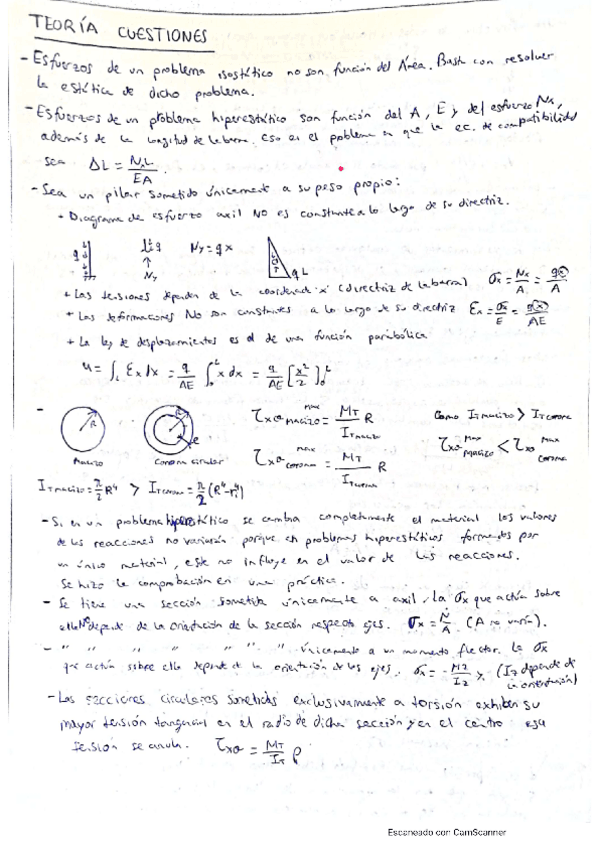 TEORÍA CUESTIONES
- Esfuerzos de un problema isostático no son función del Área. Basta con resolver
la estática de dicho problema.
- Esfuerzos de un problema hiperestático son función del A, E y del esfuerzo Nx,
además de la longitud de la barra. Eso en el problema en que la ec. de compatibilidad
sea ΔL = NxL / EA
- Sea un pilar sometido únicamente a su peso propio:
+ Diagrama de esfuerzo axil NO es constante a lo largo de su directriz.
q q Nx = qx qL
+ Las tensiones dependen de la coordenada x (directriz de la barra) σx = Nx/A = qx/A
+ Las deformaciones NO son constantes a lo largo de su directriz Ex = σx/E = qx/AE
+ La ley de desplazamientos es el de una función parabólica
u = ∫L Ex dx = q/AE ∫0L x dx = q/AE [x²/2]0L
- R R τxσ max macizo = MT / IT macizo R Como IT macizo > IT corona
Macizo Corona circular τxσ max corona = MT / IT corona R τxσ max macizo < τxσ max corona
IT macizo = π/2 R⁴ > IT corona = π/2 (R⁴-r⁴)
- Si en un problema hiperestático se cambia completamente el material los valores
de las reacciones no variarán porque en problemas hiperestáticos formados por
un único material, este no influye en el valor de las reacciones.
Se hizo la comprobación en una práctica.
- Se tiene una sección sometida únicamente a axil, la σx que actúa sobre
ella No depende de la orientación de la sección respecto ejes. σx = N/A (A no varía).
- " " " " " " " únicamente a un momento flector, la σx
que actúa sobre ella depende de la orientación de los ejes. σx = -Mz/Iz y (Iz depende de
la orientación)
- Las secciones circulares sometidas exclusivamente a torsión exhiben su
mayor tensión tangencial en el radio de dicha sección y en el centro esa
tensión se anula. τxσ = MT/IT ρ
Escaneado con CamScanner